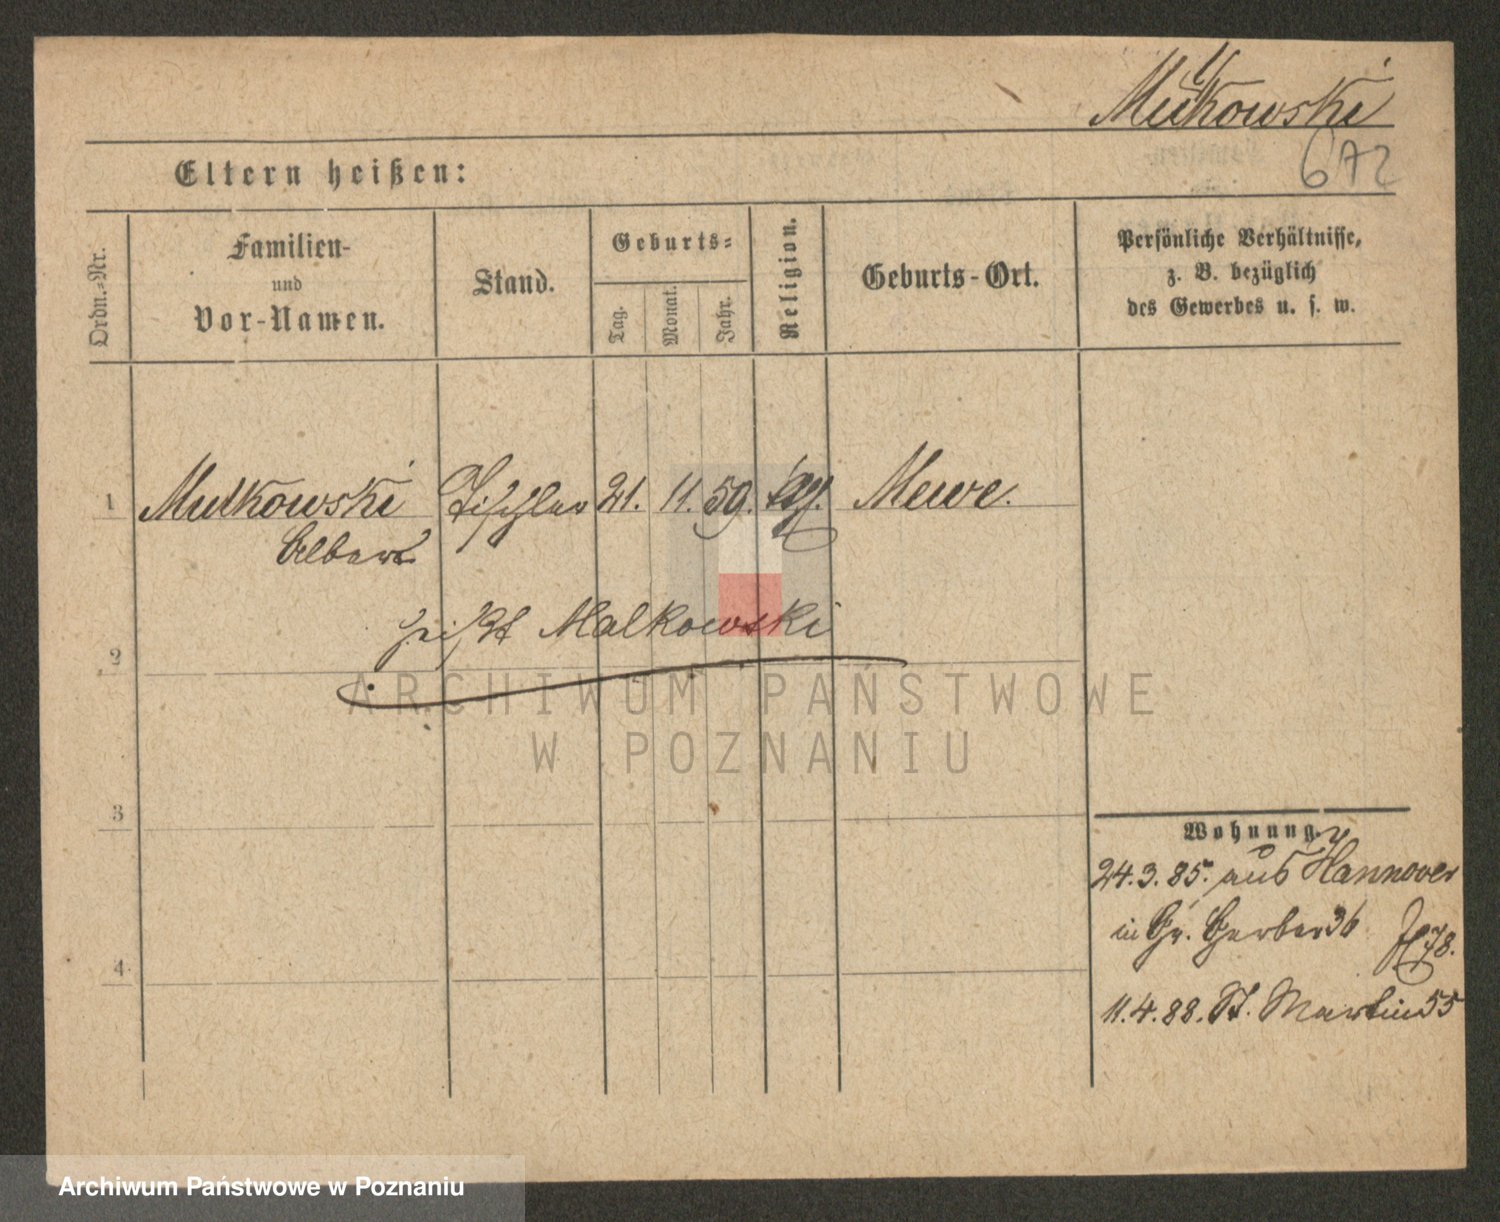 Mutkowski
672
Eltern heißen:
Ordn.-Nr.
Familien-
und
Vor-Namen.
Stand.
Geburts-
Tag.
Monat.
Jahr.
Religion.
Geburts-Ort.
Persönliche Verhältnisse,
z. B. bezüglich
des Gewerbes u. s. w.
1 Mutkowski Tischler 21. 11. 59. Mewe.
Albert
heißt Malkowski
2
3
4
Wohnung.
24.3.85. aus Hannover
in Gr. Gerber 36
78.
11.4.88. St. Martin 55
ARCHIWUM PAŃSTWOWE
W POZNANIU
Archiwum Państwowe w Poznaniu